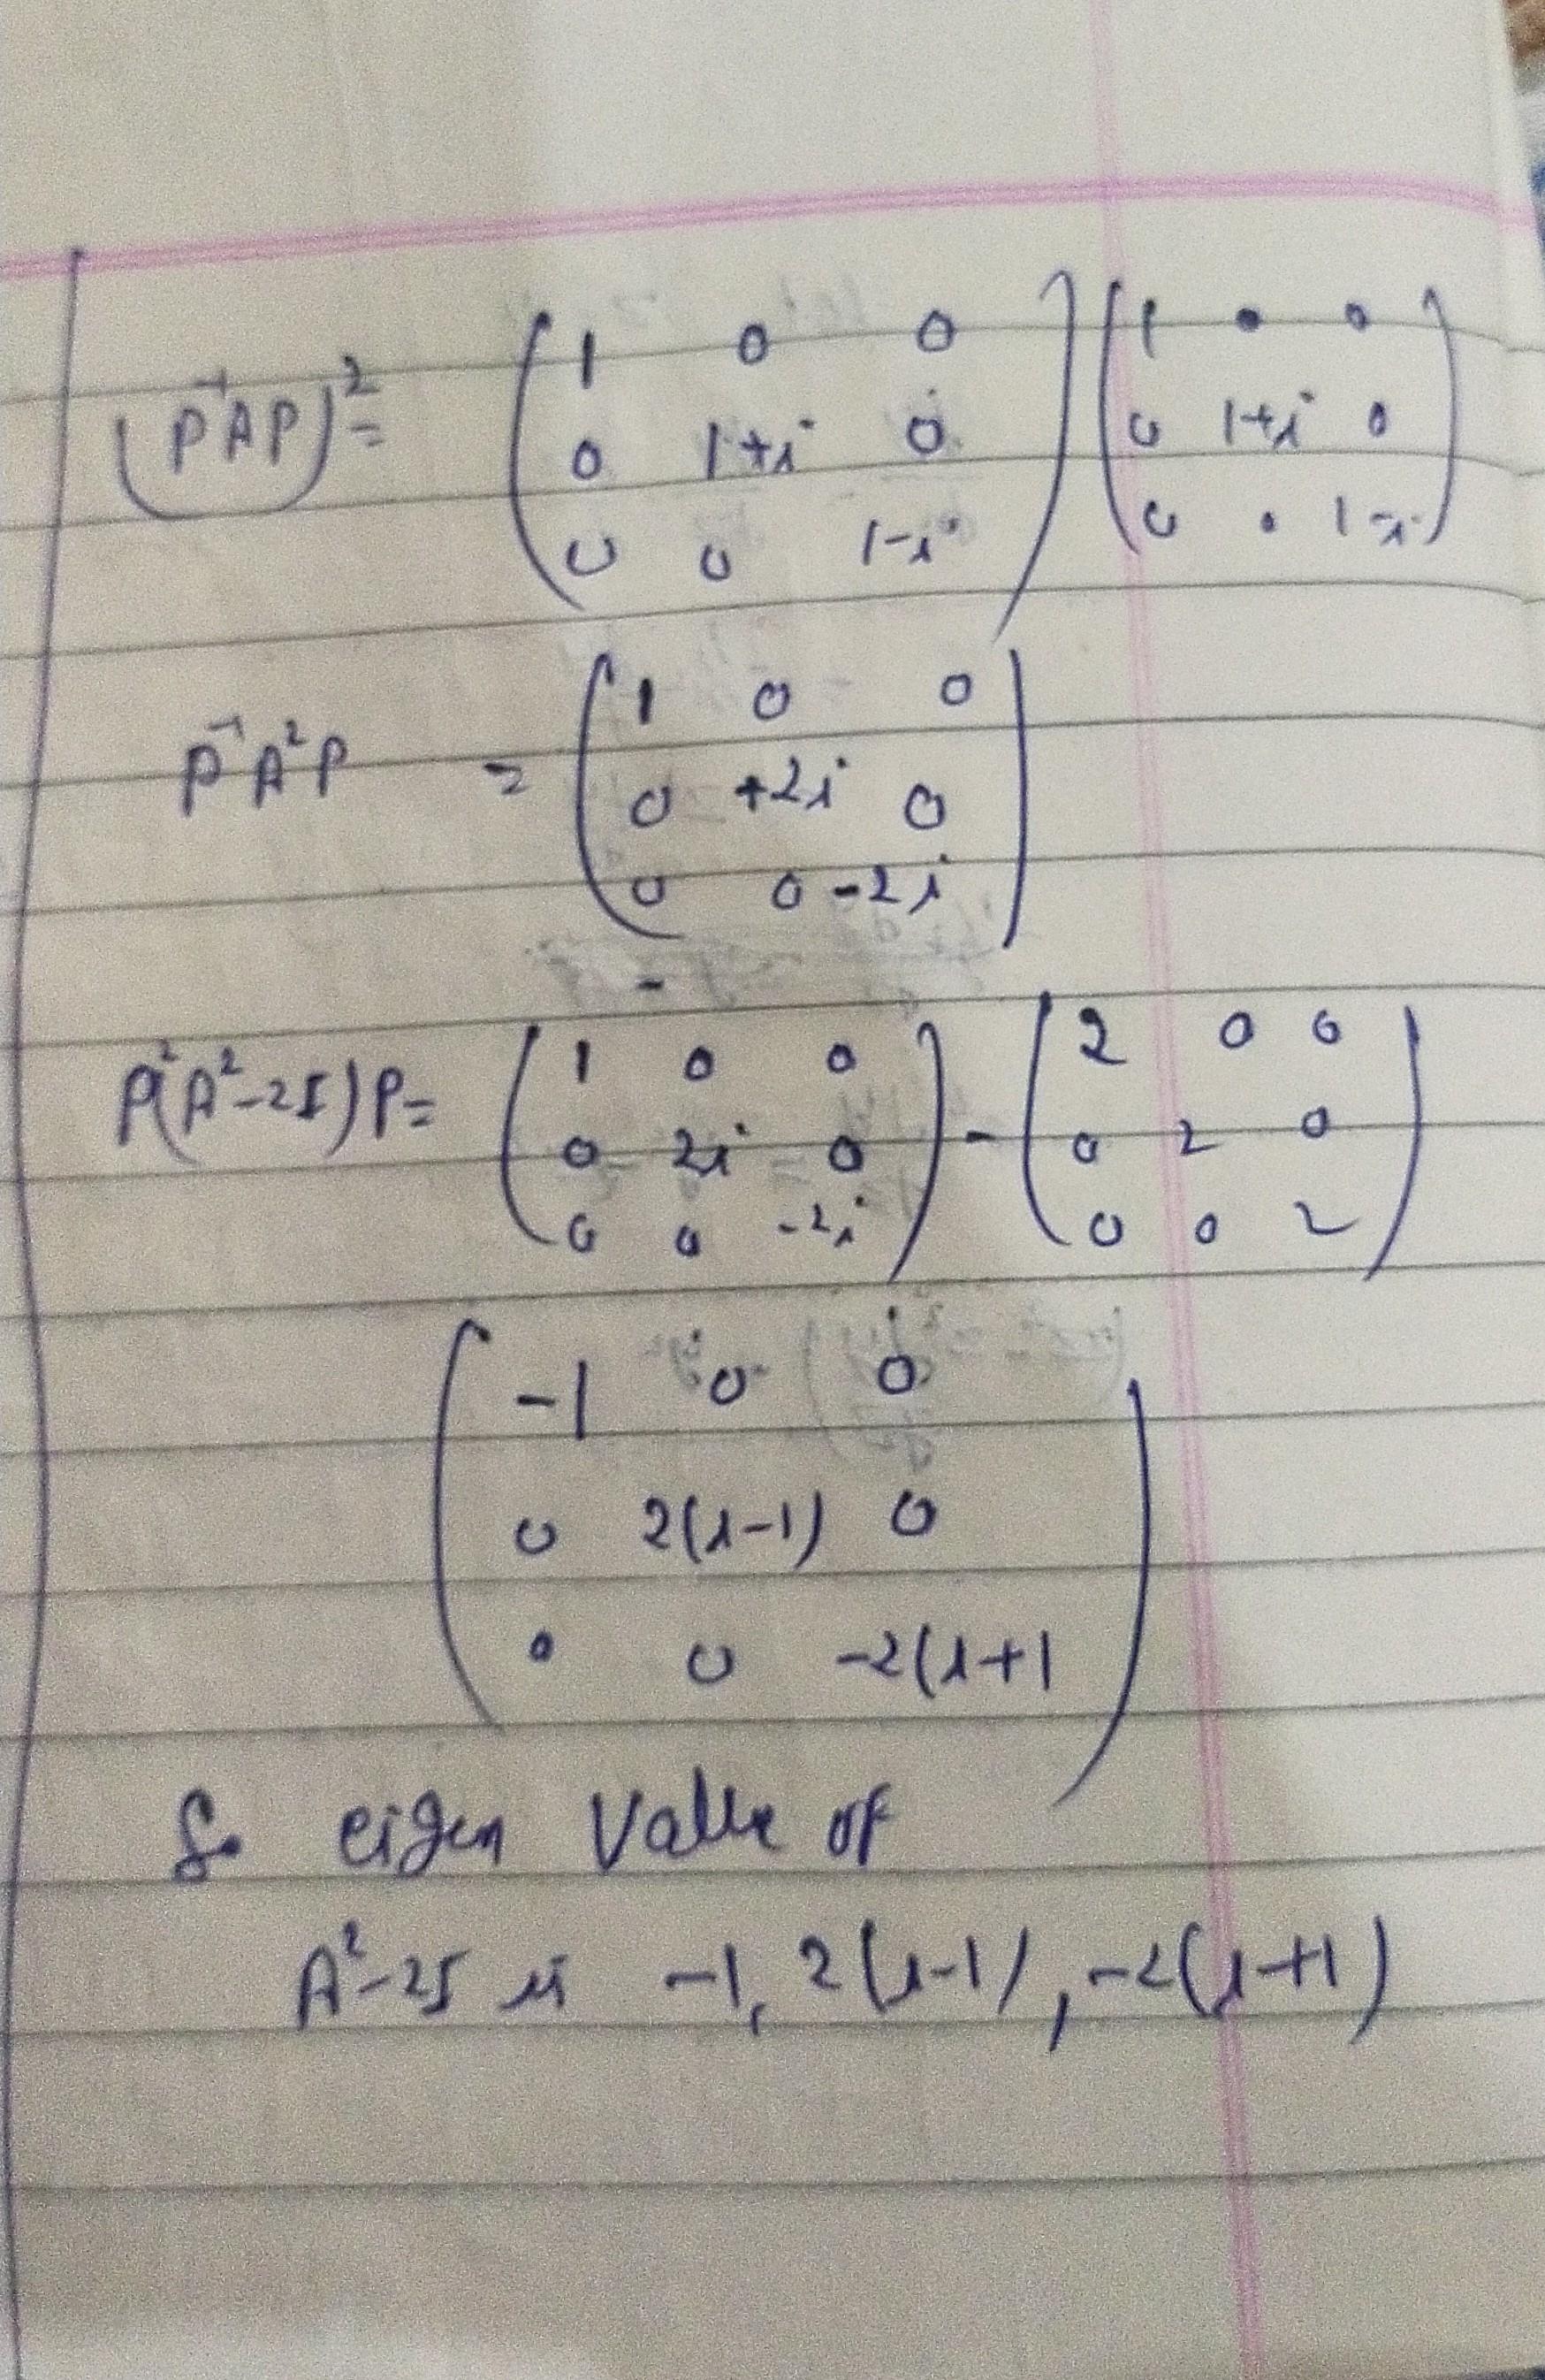 (P⁻¹AP)² = ( 1 0 0 ) ( 1 0 0 )
( 0 1+i 0 ) ( 0 1+i 0 )
( 0 0 1-i ) ( 0 0 1-i )
P⁻¹A²P = ( 1 0 0 )
( 0 +2i 0 )
( 0 0 -2i )
P²(A²-2I)P = ( 1 0 0 ) - ( 2 0 0 )
( 0 2i 0 ) ( 0 2 0 )
( 0 0 -2i ) ( 0 0 2 )
( -1 0 0 )
( 0 2(i-1) 0 )
( 0 0 -2(i+1 )
So eigen Value of
A²-2I is -1, 2(i-1), -2(i+1)